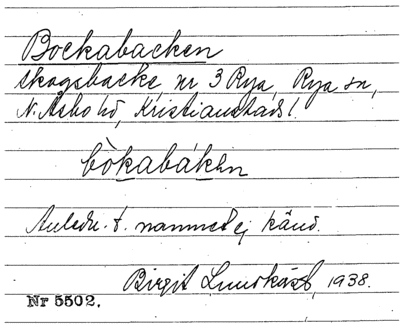 Bockabacken
skogsbacke nr 3 Rya, Rya sn,
N. Åsbo hd, Kristianstads l.
bòkabákən
Anledn. t. namnet ej känd.
Birgit 1938.
Nr 5502.